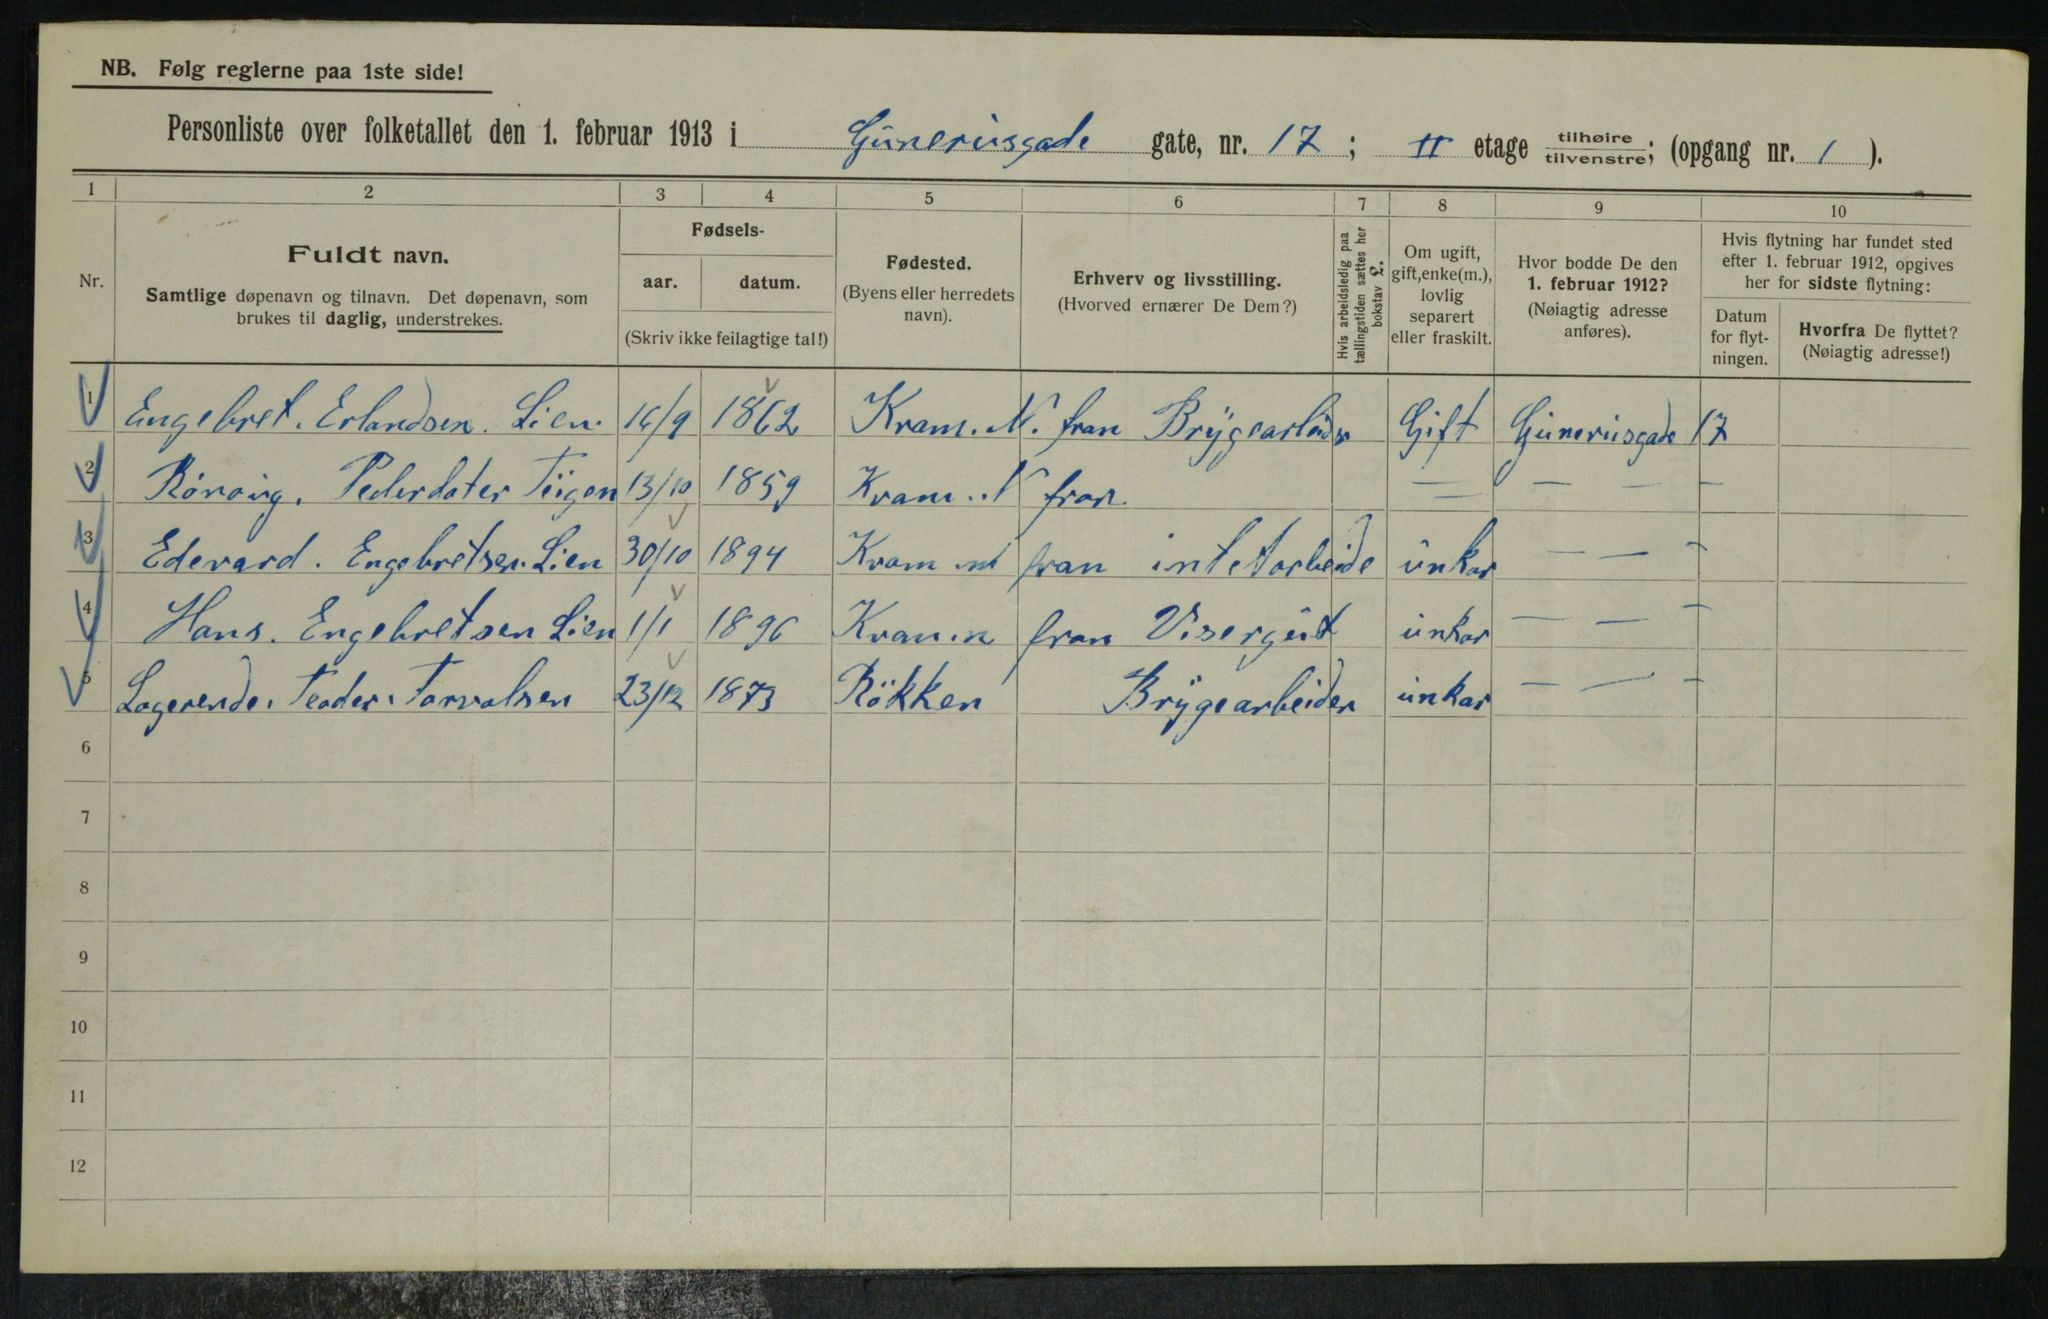 NB. Følg reglerne paa 1ste side!
Personliste over folketallet den 1. februar 1913 i Gunerusgade gate, nr. 17 ; II etage tilhøire / tilvenstre; (opgang nr. 1 ).
1 2 3 4 5 6 7 8 9 10
Nr.
Fuldt navn.
Samtlige døpenavn og tilnavn. Det døpenavn, som
brukes til daglig, understrekes.
Fødsels-
aar. datum.
(Skriv ikke feilagtige tal!)
Fødested.
(Byens eller herredets
navn).
Erhverv og livsstilling.
(Hvorved ernærer De Dem?)
Hvis arbeidsledig paa
tællingstiden sættes her
bokstav L.
Om ugift,
gift, enke(m.),
lovlig
separert
eller fraskilt.
Hvor bodde De den
1. februar 1912?
(Nøiagtig adresse
anføres).
Hvis flytning har fundet sted
efter 1. februar 1912, opgives
her for sidste flytning:
Datum
for flyt-
ningen.
Hvorfra De flyttet?
(Nøiagtig adresse!)
1 Engebret. Erlandsen. Lien. 14/9 1862 Kram. N. fran Brygearbeider Gift Gunerusgade 17
2 Pederdater Teigen 13/10 1859 Kram. N fran — — — —
3 Edevard. Engebretsen. Lien 30/10 1894 Kram. n fran intetarbeide unkar — — —
4 Hans. Engebretsen Lien 1/1 1896 Kram. n fran Visergut unkar — — —
5 Logerende. Teoder. Torvalsen 23/12 1873 Rökken Brygearbeider unkar — — —
6
7
8
9
10
11
12